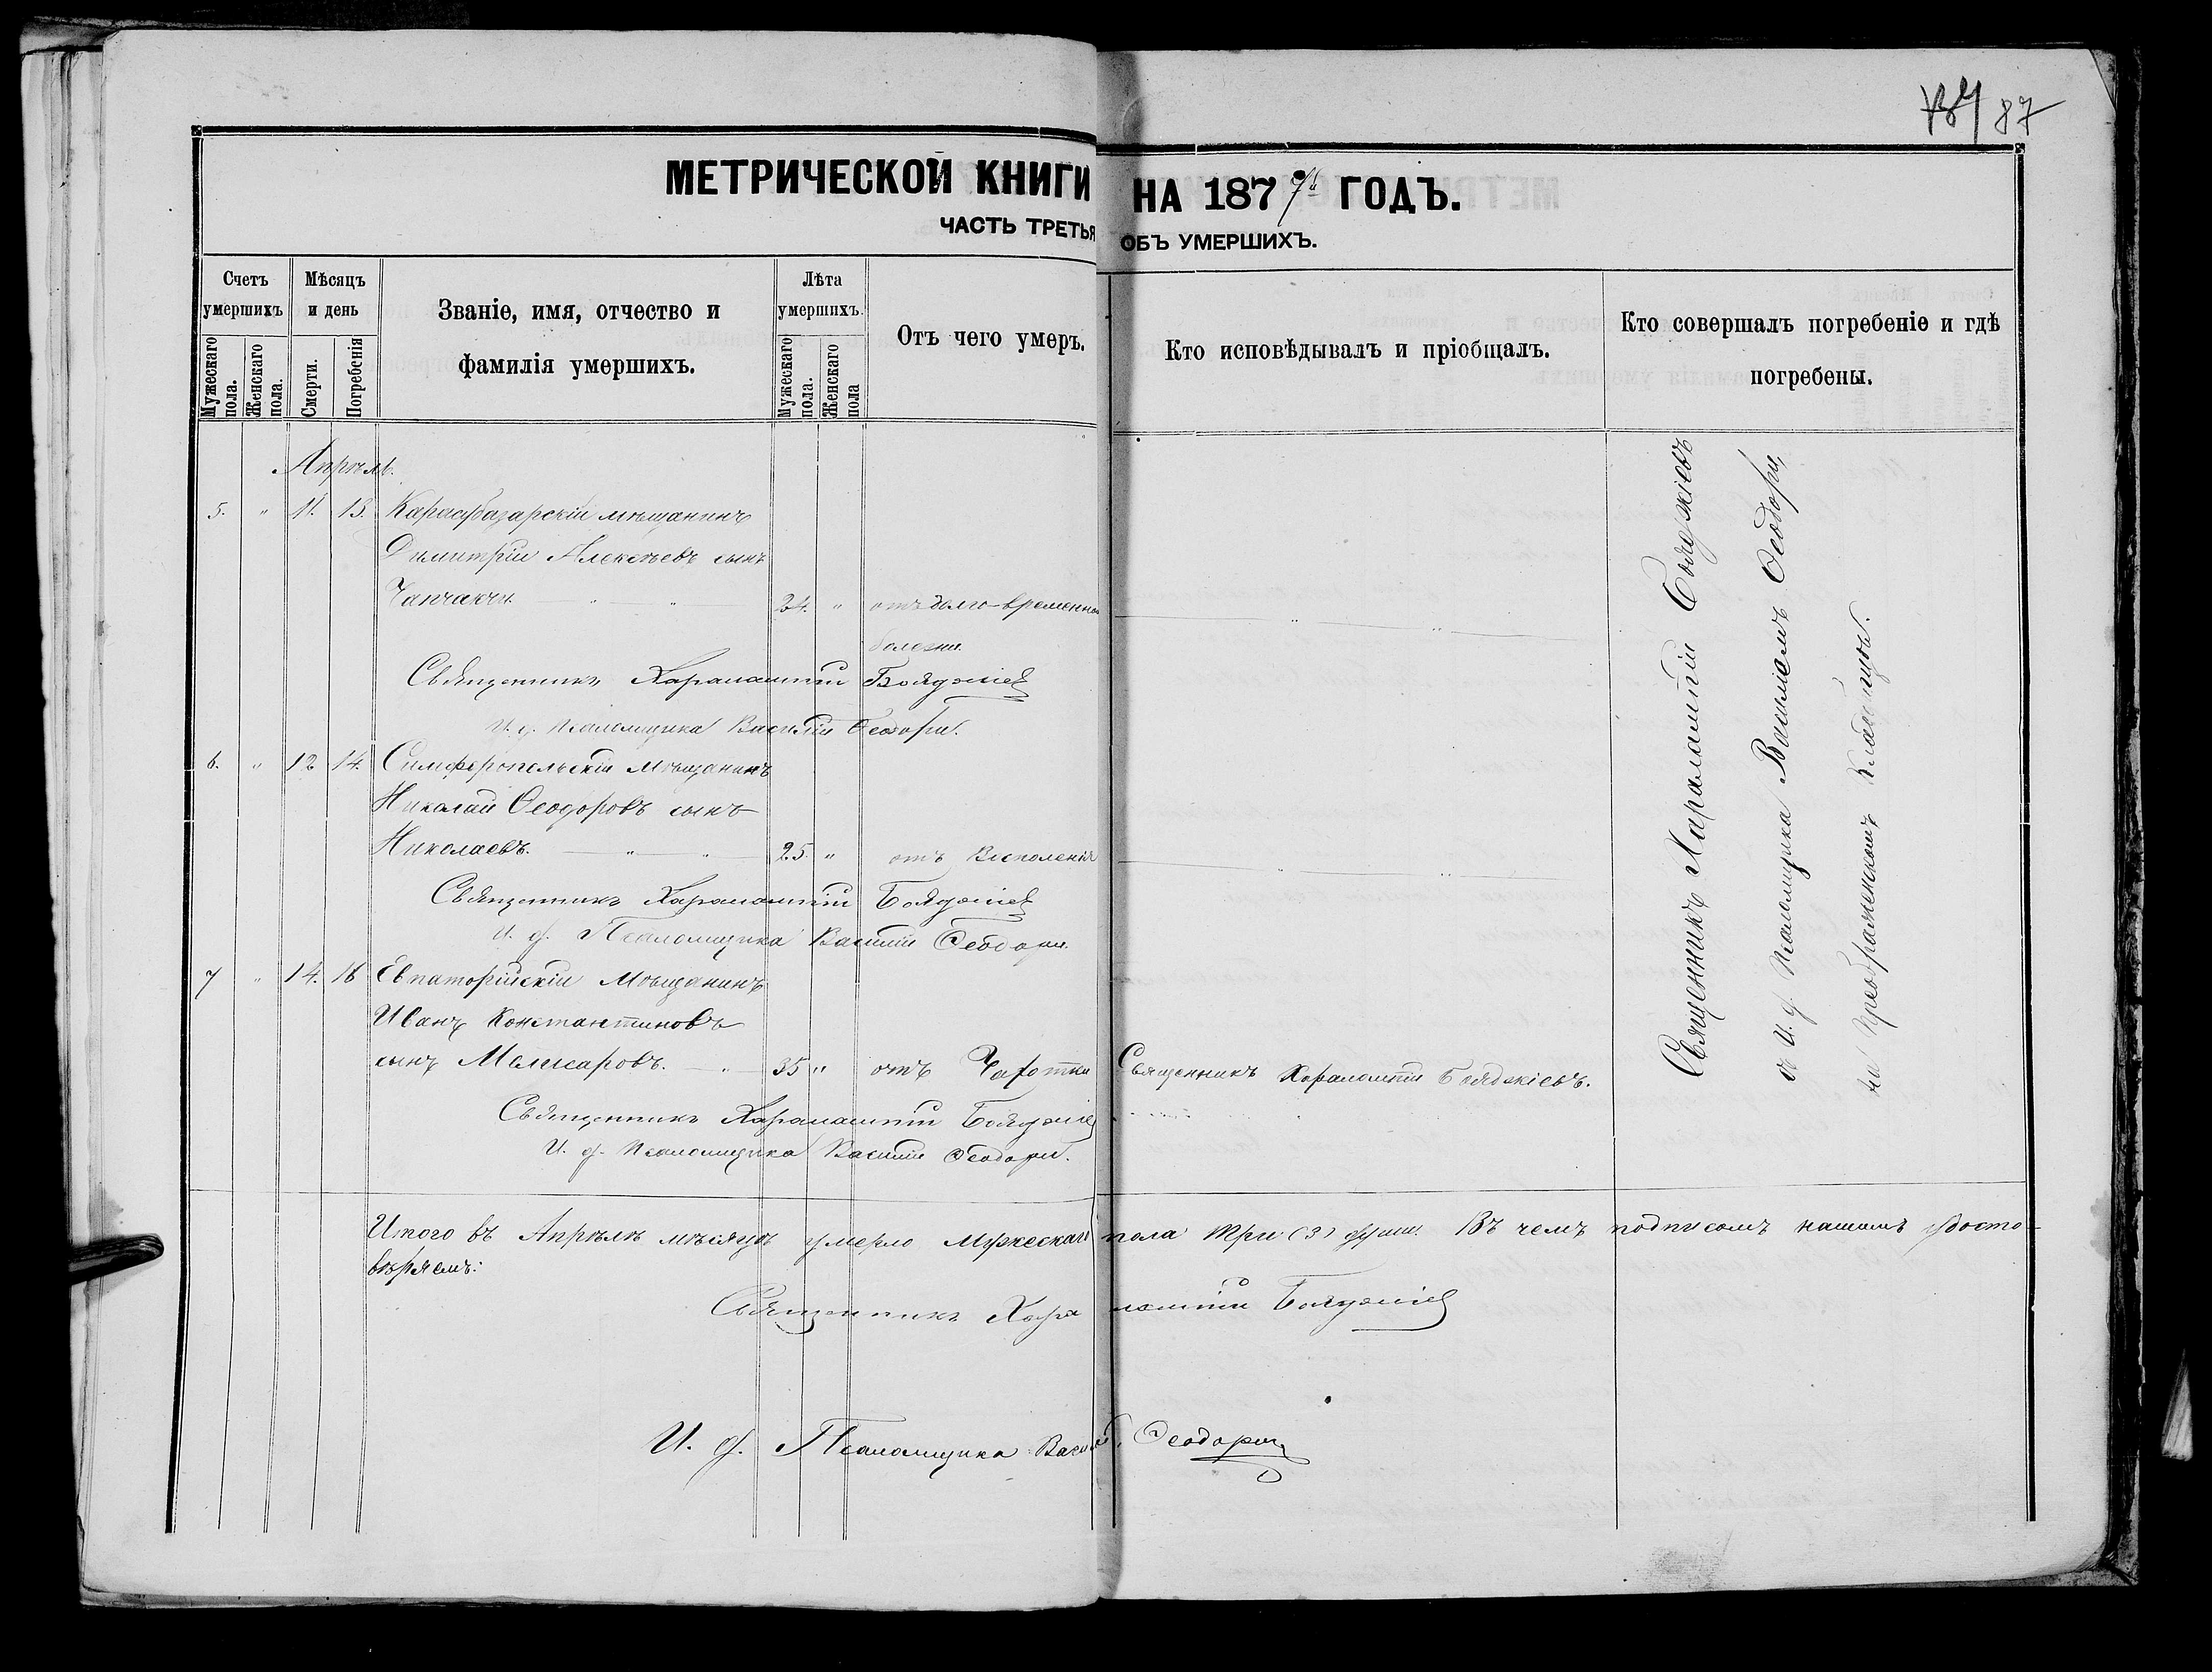 87
МЕТРИЧЕСКОЙ КНИГИ НА 1877й ГОДЪ.
ЧАСТЬ ТРЕТЬЯ ОБЪ УМЕРШИХЪ.
Счетъ умершихъ
Мужескаго пола.
Женскаго пола.
Мѣсяцъ и день
Смерти.
Погребенія
Званіе, имя, отчество и
фамилія умершихъ.
Лѣта умершихъ.
Мужескаго пола.
Женскаго пола
Отъ чего умеръ.
Кто исповѣдывалъ и пріобщалъ.
Кто совершалъ погребеніе и гдѣ
погребены.
Апрѣль.
5. " 11. 13. Карасубазарскій мѣщанинъ
Димитрій Алексѣевъ сынъ
Чапчакчи. " " 24. " отъ долго-временной " "
болезни.
Священникъ Харалампій Бояджіев
И. д. Псаломщика Василій Ѳеодори.
6. " 12 14. Симферопольскій Мѣщанинъ
Николай Ѳеодоровъ сынъ
Николаевъ. " " 25. " отъ Воспаленія " "
Священникъ Харалампій Бояджіев
И. д. Псаломщика Василій Ѳеодори.
7 " 14. 16 Евпаторійскій Мѣщанинъ
Иванъ Константиновъ
сынъ " 35 " отъ Чахотки Священникъ Харалампій Бояджіевъ.
Священникъ Харалампій Бояджіев
И. д. Псаломщика Василій Ѳеодори.
Священникъ Харалампій Бояджіевъ
съ И. д. Псаломщика Василіемъ Ѳеодори,
на Преображенскомъ Кладбищѣ.
Итого въ Апрѣлѣ мѣсяцѣ умерло Мужескаго пола три (3) души. Въ чемъ подписомъ нашимъ удосто-
вѣряемъ:
Священникъ Харалампій Бояджіев
И. д. Псаломщика Василій Ѳеодори